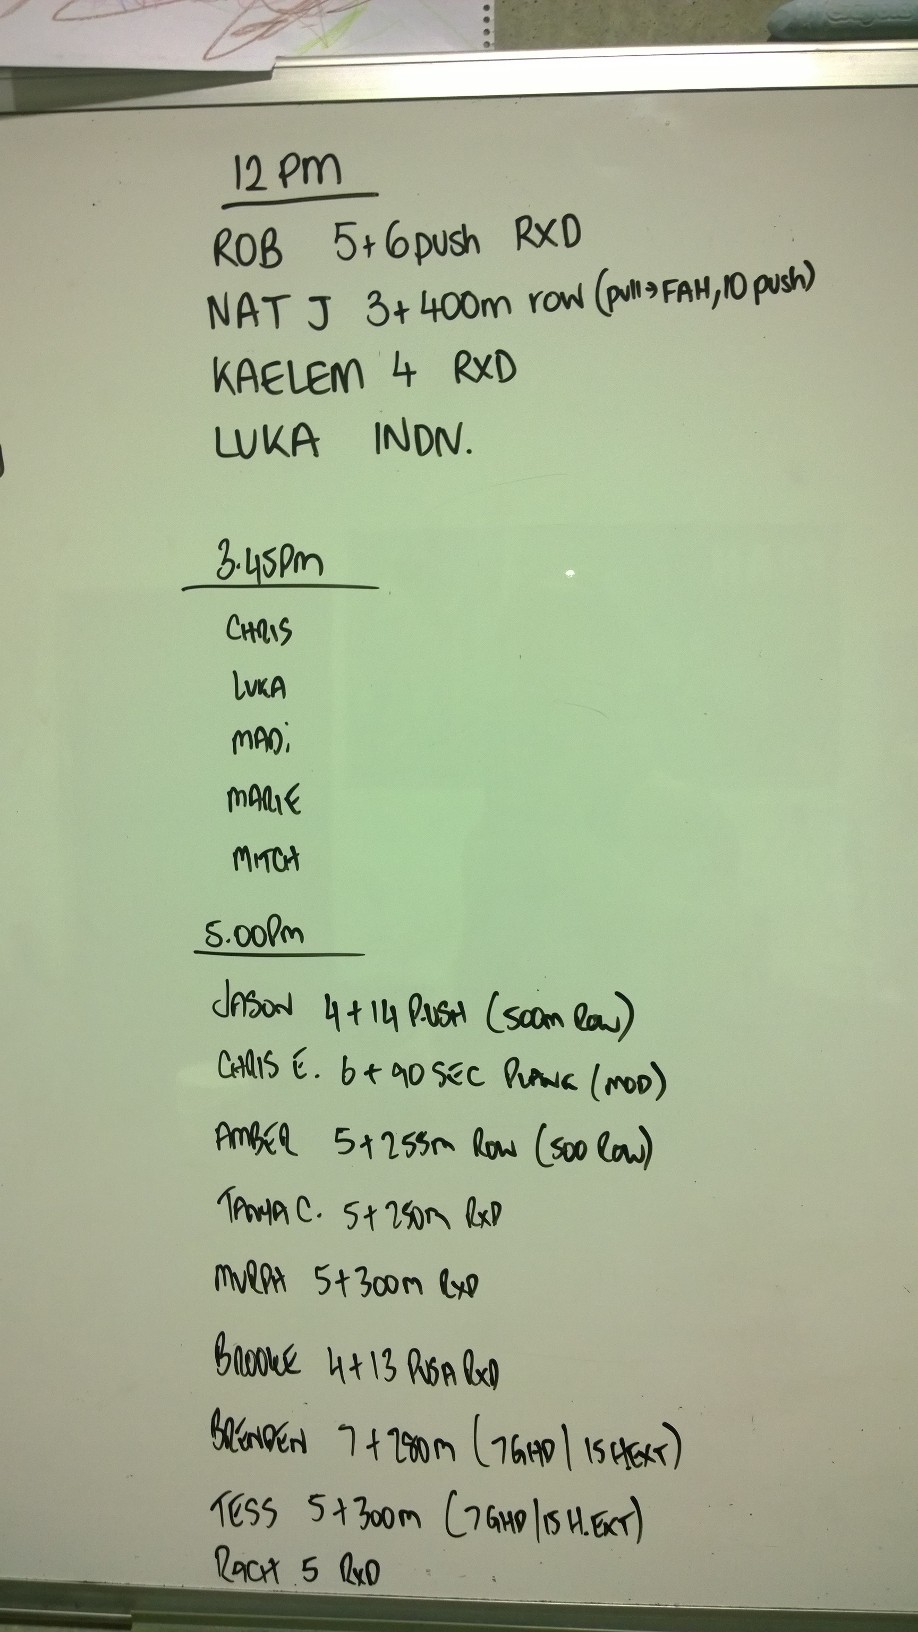 12 PM
ROB 5+6 push RXD
NAT J 3+400m row (pull→FAH, 10 push)
KAELEM 4 RXD
LUKA INDN.
3.45PM
CHRIS
LUKA
MADi
MARIE
MITCH
5.00PM
JASON 4+14 PUSH (500m Row)
CHRIS E. 6+90 SEC PLANK (MOD)
AMBER 5+255m Row (500 Row)
TANYA C. 5+250m RXD
MURPH 5+300m RXD
BROOKE 4+13 PUSH RXD
BRENDEN 7+280m (7GHD/15 H.EXT)
TESS 5+300m (7GHD/15 H.EXT)
RACH 5 RXD